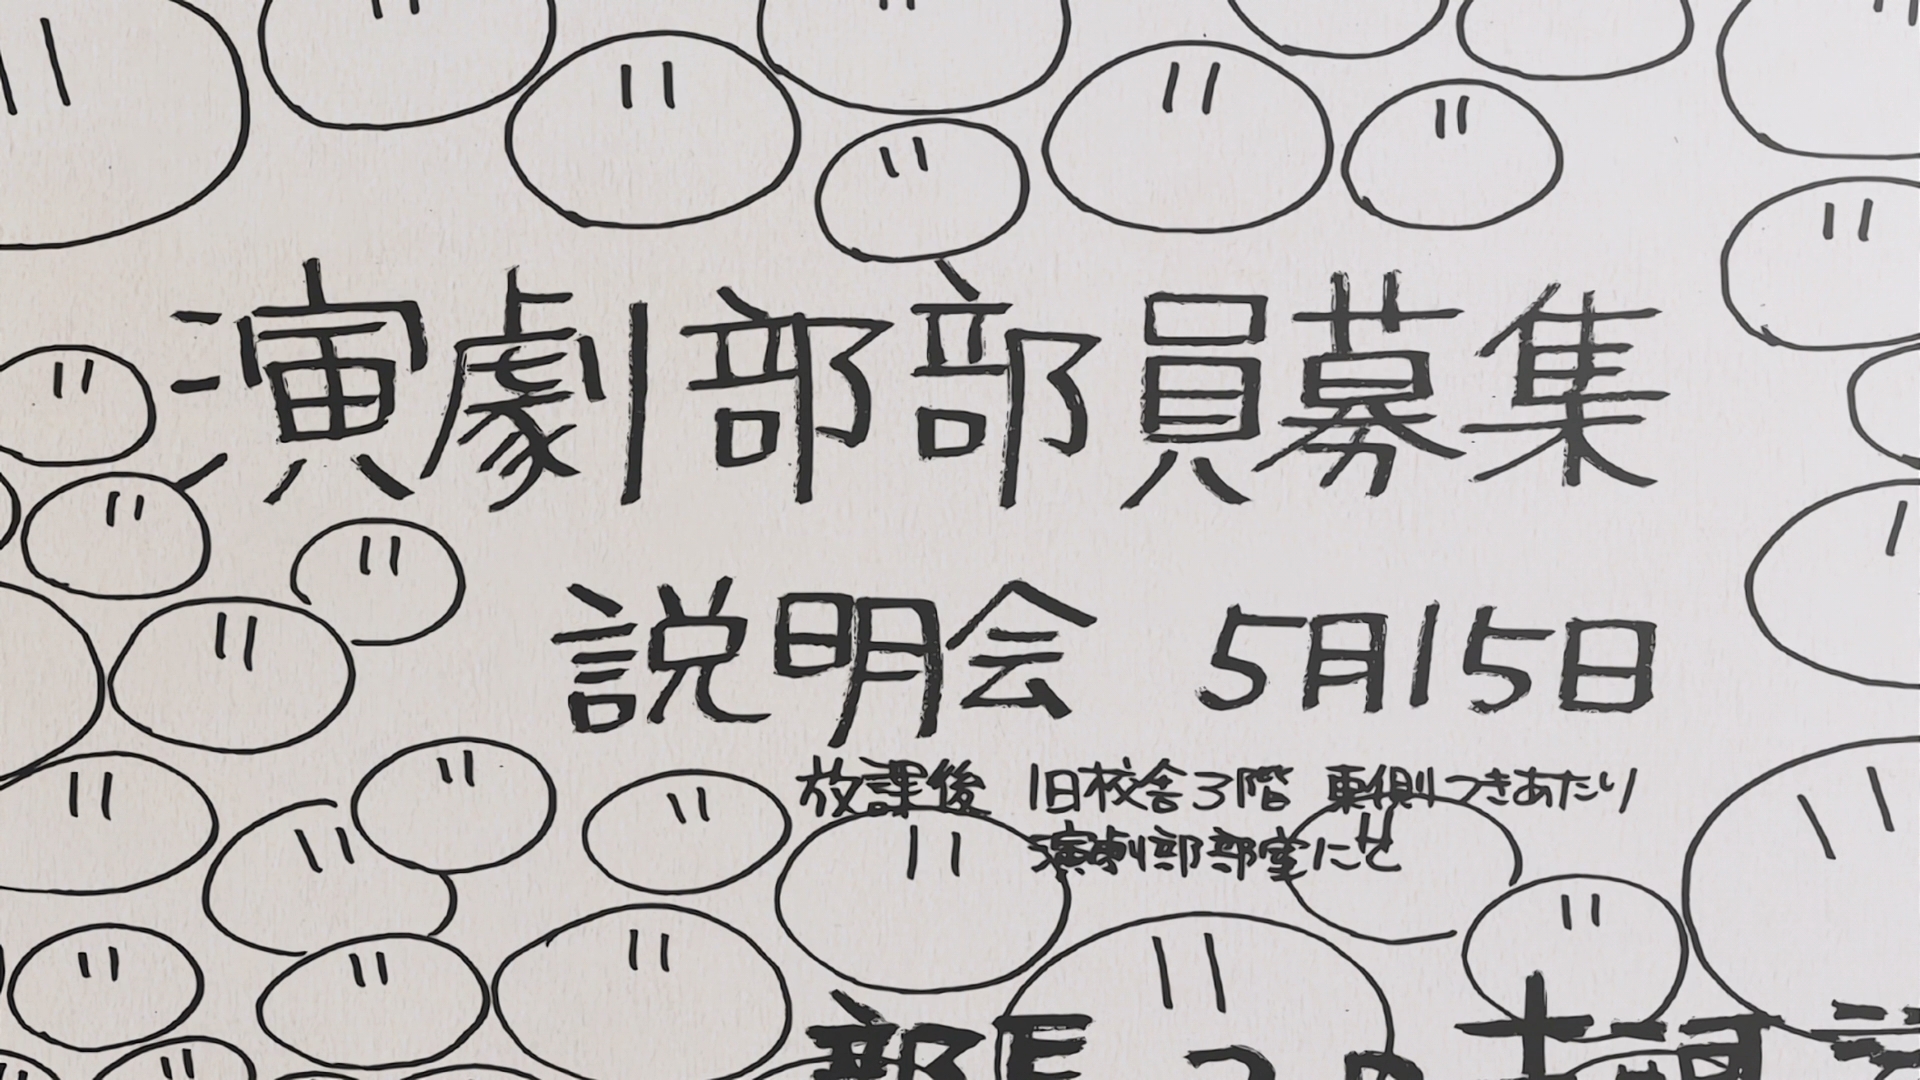 演劇部部員募集
説明会 5月15日
放課後 旧校舎3階 東側つきあたり
演劇部部室にて
部長